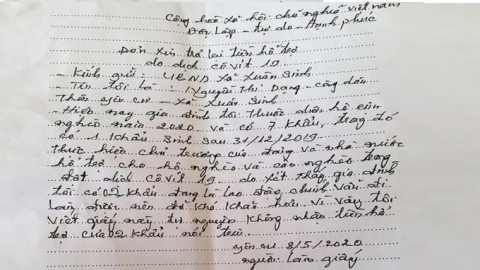 Cộng hòa xã hội chủ nghĩa Việt nam
Độc Lập - tự do - Hạnh phúc
Đơn xin trả lại tiền hỗ trợ
do dịch Covit 19
- Kính gửi: UBND Xã Xuân Sinh
- Tên tôi là: Nguyễn Thị Dạng - công dân
Thôn yên cư - Xã Xuân Sinh
- Hiện nay gia đình tôi Thuộc diện hộ cận
nghèo năm 2020 và có 7 khẩu, trong đó
có 1 khẩu sinh sau 31/12/2019
Thực hiện chủ trương của đảng và nhà nước
hỗ trợ cho hộ nghèo và cận nghèo trong
đợt dịch Covit 19 do xét thấy gia đình
tôi có 02 khẩu đang là lao động chính vẫn đi
làm được nên đỡ khó khăn hơn vì vậy tôi
viết giấy này tự nguyện không nhận tiền hỗ
trợ của 02 khẩu nói trên.
yên cư 3/5/2020
người làm giấy